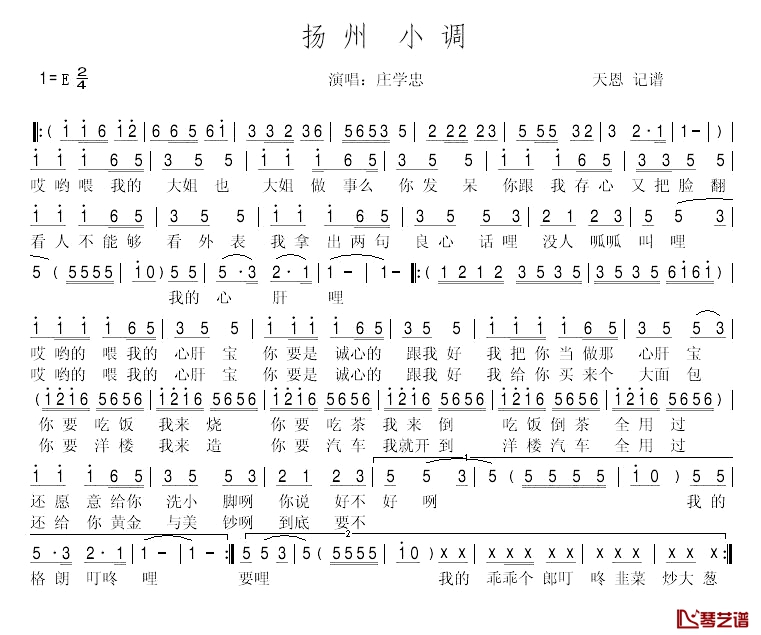 扬州 小调
1=E 2/4 演唱：庄学忠 天恩 记谱
‖:( i i 6 i 2 | 6 6 5 6 i | 3 3 2 3 6 | 5 6 5 3 5 | 2 2 2 2 3 | 5 5 5 3 2 | 3 2 · 1 | 1 - ) |
i i i 6 5 | 3 5 5 | i i i 6 5 | 3 5 5 | i i i 6 5 | 3 5 5 |
哎哟喂我的 大姐也 大姐做事么 你发呆 你跟我存心 又把脸翻
i i i 6 5 | 3 5 5 | i i i 6 5 | 3 3 5 3 | i i 6 5 | 5 5 3 |
看人不能够 看外表 我拿出两句 良心话哩 没人呱呱叫哩
5 ( 5 5 5 5 | i 0 ) 5 5 | 5 · 3 2 · 1 | 1 - | 1 - ‖:( 1 2 1 2 3 5 3 5 | 3 5 3 5 6 i 6 i ) |
我的心肝哩
i i i 6 5 | 3 5 5 | i i i i 6 5 | 3 5 5 | i i i 6 5 | 3 5 5 3 |
哎哟的喂我的心肝宝 你要是诚心的跟我好 我把你当做那心肝宝
哎哟的喂我的心肝宝 你要是诚心的跟我好 我给你买来个大面包
( i 2 i 6 5 6 5 6 | i 2 i 6 5 6 5 6 | i 2 i 6 5 6 5 6 | i 2 i 6 5 6 5 6 | i 2 i 6 5 6 5 6 | i 2 i 6 5 6 5 6 ) |
你要吃饭我来烧 你要吃茶我来倒 吃饭倒茶全用过
你要洋楼我来造 你要汽车我就开到 洋楼汽车全用过
i i i 6 5 | 3 5 5 | 2 1 2 3 | 5 5 3 | 5 ( 5 5 5 5 | i 0 ) 5 5 |
还愿意给你 洗小脚咧 你说好不好咧 我的
还给你黄金 与美钞咧 到底要不
5 · 3 2 · 1 | 1 - | 1 - :‖ 5 5 3 | 5 ( 5 5 5 5 | i 0 ) x x | x x x x | x x x x :‖
格朗叮咚哩 要哩 我的 乖乖个郎叮咚韭菜炒大葱
琴艺谱